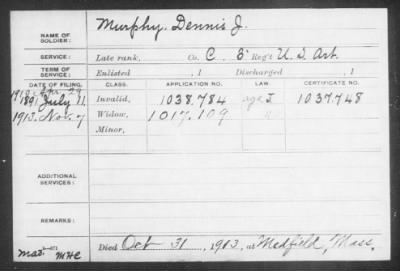 NAME OF SOLDIER: Murphy, Dennis J.
SERVICE: Late rank, Co. C. 3" Reg't U.S. Art.
TERM OF SERVICE: Enlisted , 1 Discharged , 1
DATE OF FILING. CLASS. APPLICATION NO. LAW. CERTIFICATE NO.
1912. Apr. 29
1891 July 11 Invalid, 1038.784 1037.748
1913. Nov. 7 Widow, 1017.109
Minor,
ADDITIONAL SERVICES:
REMARKS:
Died Oct 31, 1913, at Medfield, Mass.